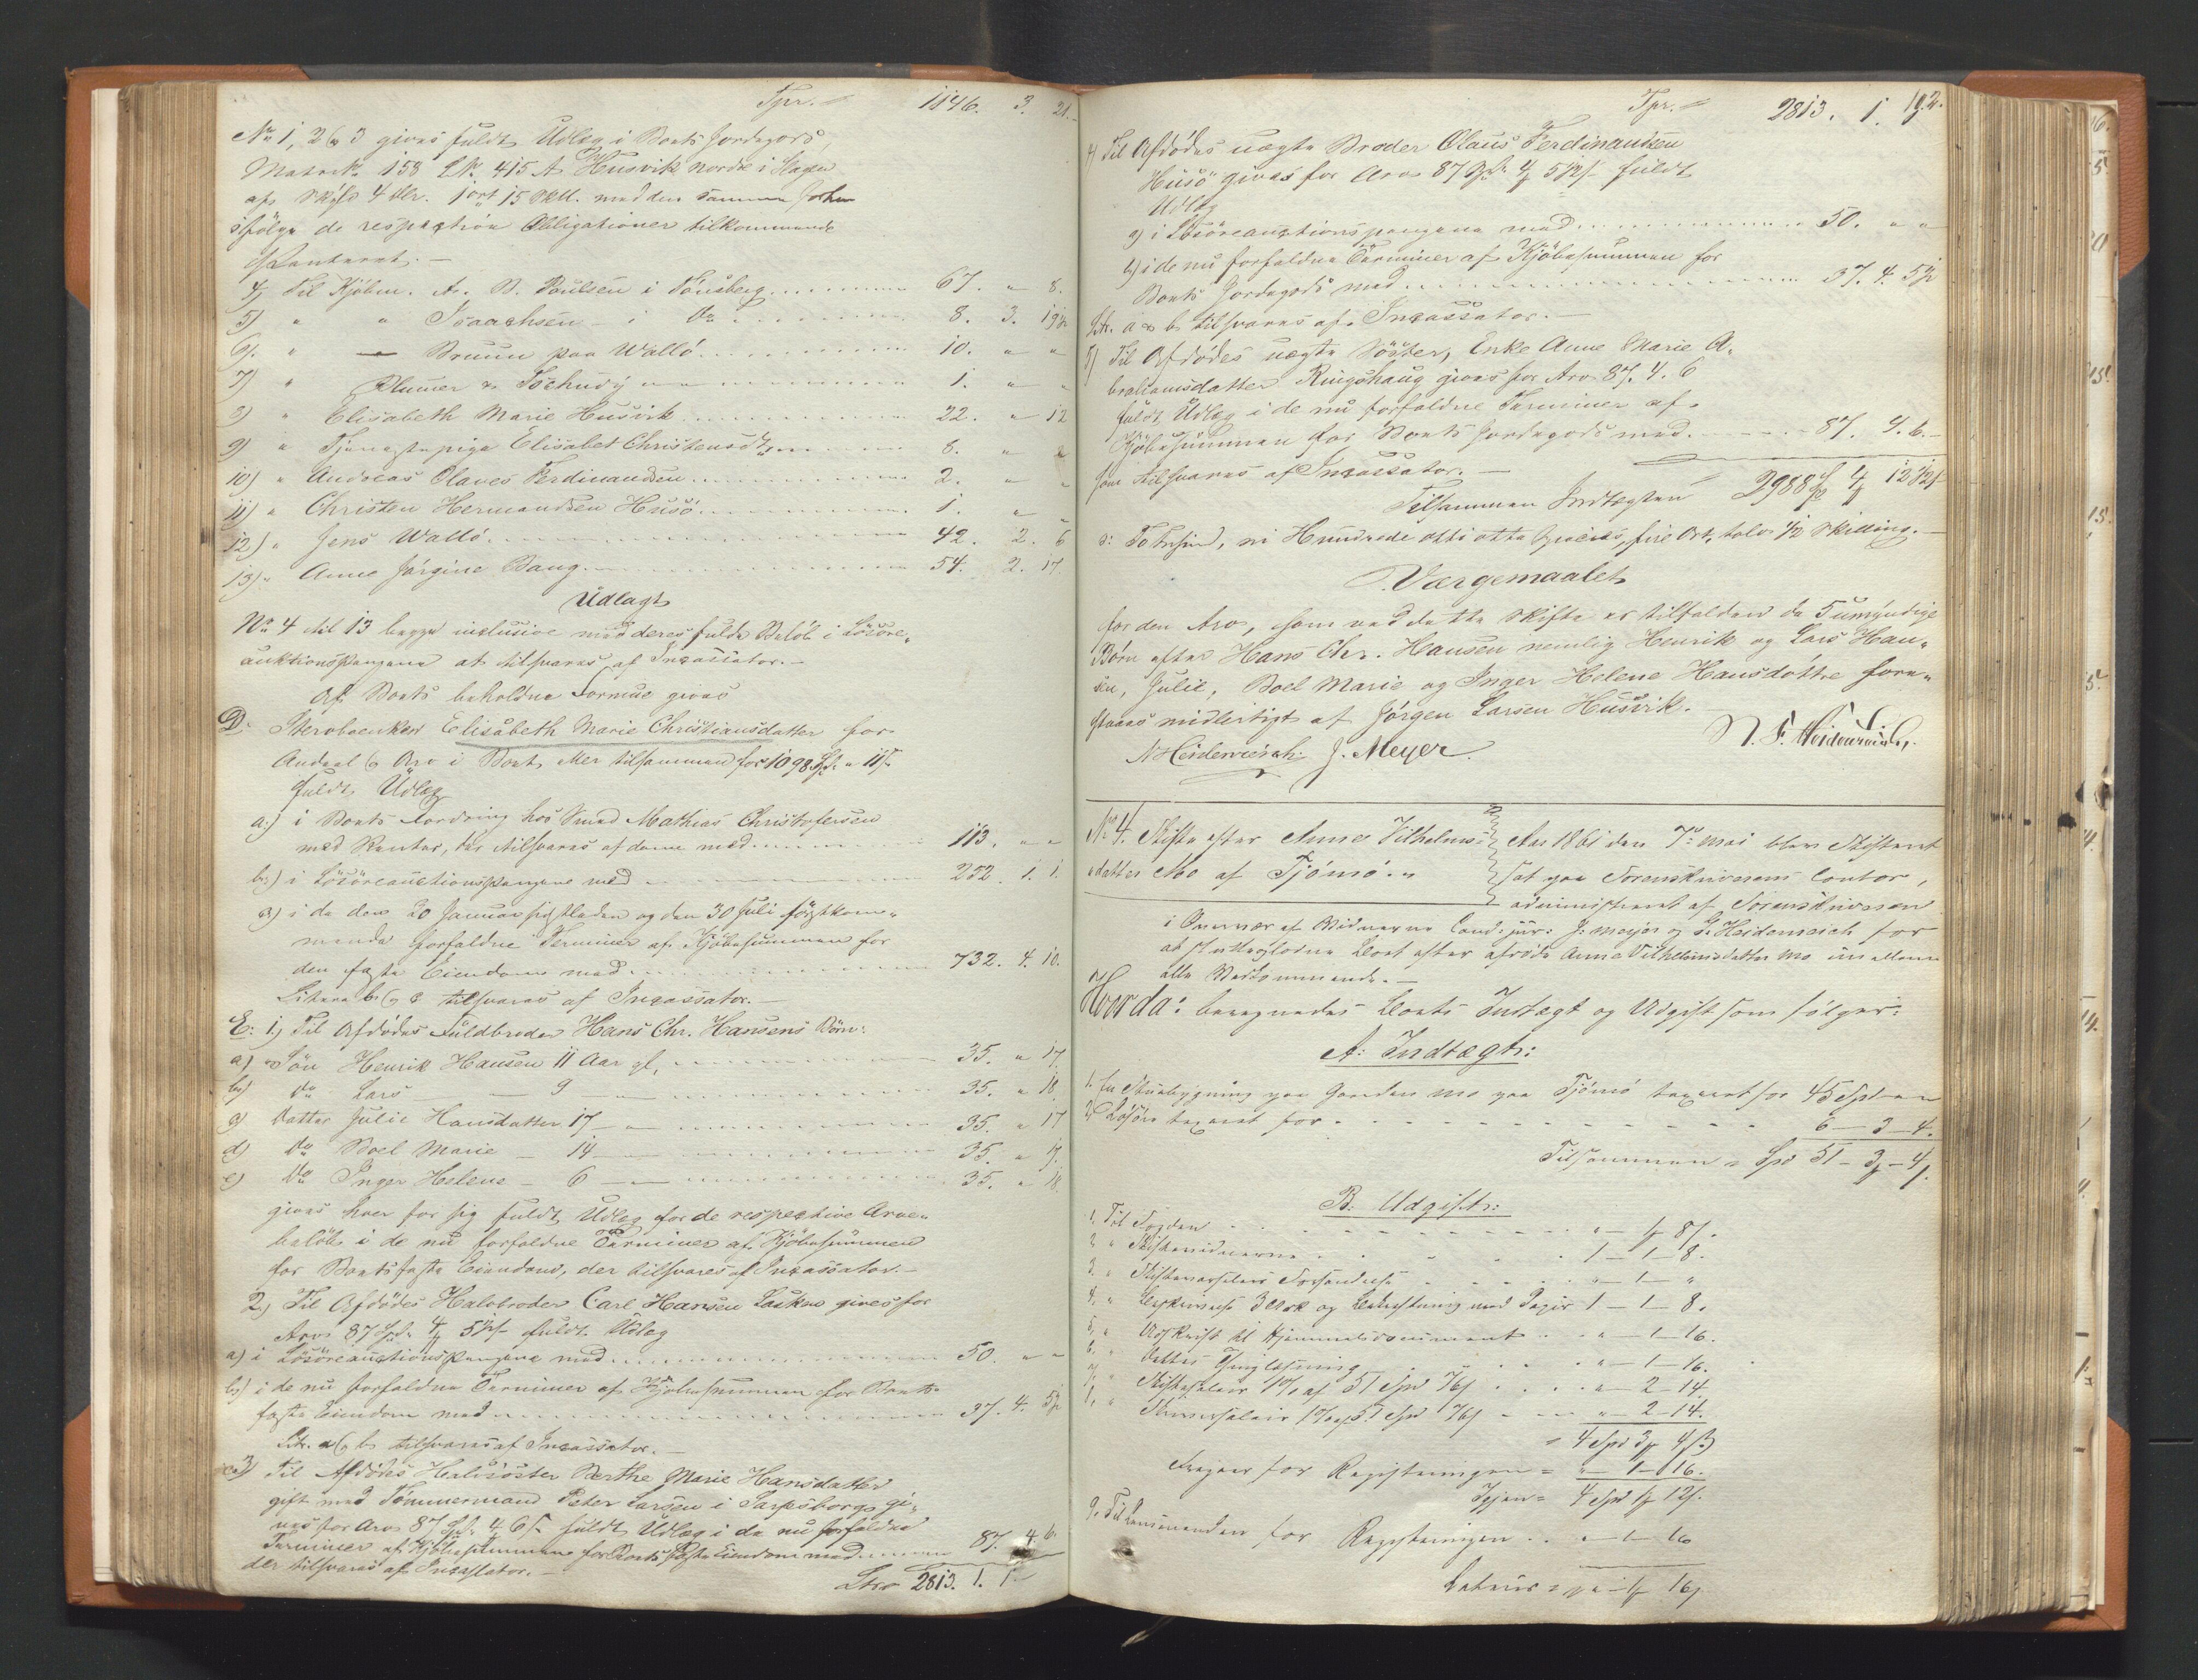 Tpr. 1146. 3. 21.
No 1, 2 & 3 gives fuldt Udlæg i Boets Jordegods,
Matr. No 158 L No 415 A Husvik nordre i Slagen
af Skyld 4 Dlr. 1 ort 15 Skill. med den samme
ifølge de respective Obligationer tilkommende
Panteret.
4) Til Kjøbm. A. B. Poulsen i Tønsberg 67. " 8.
5) " " Isaachsen i do 8. 3. 19½
6) " Bruun paa Wallö 10. " "
7) " Plumer & Tschudy 1. " "
8) " Elisabeth Marie Husvik 22. " 12
9) " Tjenestepige Elisabet Christensdtr 8. " "
10) " Andreas Olaves Ferdinandsen 2. " "
11) " Christen Hermandsen Husö 1. " "
12) " Jens Wallö 42. 2. 6
13) " Anne Jörgine Bang 54. 2. 17
Udlagt
No 4 til 13 begge inclusive med deres fulde Beløb i Løsøre-
auktionspengene at tilsvares af Incassator.
Af Boets beholdne Formue gives
D: Sterboenken Elisabeth Marie Christiansdatter for
Andeel & Arv i Boet, eller tilsammen for 1098 Spd. " 11 s
fuldt Udlæg
a) i Boets Fordring hos Smed Mathias Christofersen
med Renter, der tilsvares af denne med 113. " "
b) i Løsøreauctionspengene med 252. 1. 1.
c) i de den 20 Januar sidstleden og den 30 Juli førstkom-
mende forfaldne Terminer af Kjøbesummen for
den faste Eiendom med 732. 4. 10.
Litera b & c tilsvares af Incassator.
E: 1) Til Afdødes Fuldbroder Hans Chr. Hansens Børn:
a) Søn Henrik Hansen 11 Aar gl. 35. " 17.
b) do Lars — 9 — 35. " 18.
c) Datter Julie Hansdatter 17 — 35. " 17
d) do Boel Marie — 14 — 35. " 17.
e) do Inger Helene — 6 — 35. " 18.
gives hver for sig fuldt Udlæg for de respective Arve-
beløb i de nu forfaldne Terminer af Kjøbesummen
for Boets faste Eiendom, der tilsvares af Incassator.
2) Til Afdødes Halvbroder Carl Hansen gives for
Arv 87 Spd. 4 5½ s fuldt Udlæg
a) i Løsøreauctionspengene med 50. " "
b) i de nu forfaldne Terminer af Kjøbesummen for Boets
faste Eiendom med 37. 4. 5½
Litr. a & b tilsvares af Incassator.
3) Til Afdødes Halvsøster Berthe Marie Hansdatter
gift med Tømmermand Peter Larsen i Sarpsborg gi-
ves for Arv 87 Spd. 4 6 s fuldt Udlæg i de nu forfaldne
Terminer af Kjøbesummen for Boets faste Eiendom med 87. 4. 6.
der tilsvares af Incassator.
Ltro 2813. 1. 1.
Tpr. 2813. 1. 1 92.
4) Til Afdødes uægte Broder Olaus Ferdinandsen
Husö gives for Arv 87 Spd. 4 5½ s fuldt
Udlæg
a) i Løsøreauctionspengene med 50. " "
b) i de nu forfaldne Terminer af Kjøbesummen for
Boets Jordegods med 37. 4. 5½
Litr. a & b tilsvares af Incassator.
5) Til Afdødes uægte Söster, Enke Anne Marie A-
brahamsdatter Ringshaug gives for Arv 87. 4. 6
fuldt Udlæg i de nu forfaldne Terminer af
Kjøbesummen for Boets Jordegods med 87. 4. 6.
som tilsvares af Incassator.
Tilsammen Indtægten 2988 Sp 4 12½ s
o: To Tusind, ni Hundrede otti otte Species, fire Ort, tolv ½ Skilling.
Værgemaalet
for den Arv, som ved dette Skifte er tilfalden de 5 umyndige
Børn efter Hans Chr. Hansen nemlig Henrik og Lars Han-
sen, Julie, Boel Marie og Inger Helene Hansdøttre fore-
staaes midlertidigt af Jørgen Larsen Husvik.
N. F. Heidenreich.
N Heidenreich J. Meyer.
No 4. Skifte efter Anne Vilhelms-
datter Mo af Tjømø.
Aar 1861 den 7de Mai blev Skifteret
sat paa Sorenskriverens Contor,
administreret af Sorenskriveren
i Overvær af Vidnerne Cand: jur: J: Meyer og G. Heidenreich for
at slutte Boet efter afdøde Anne Vilhelmsdatter Mo imellem
alle Vedkommende.
Hvorda: beregnedes Boets Indtægt og Udgift som følger:
A: Indtægt:
1. En Stuebygning paa Gaarden Mo paa Tjømø taxeret for 45 Spd " "
2. Løsøre taxeret for 6 — 3 — 4.
Tilsammen = Spd 51 — 3 — 4.
B. Udgift:
1. Til Fogden " — 1 8 s.
2. " Skiftevidnerne 1 — 1 — 8.
3. " Skiftevarselens Forsendelse " — 1 — "
4. " Beskrivelse 3 Ark og Bekræftning med Papir 1 — 1 — 8.
5. " Udskrift til Hjemmelsdocument " — 1 — 16.
6. " Dettes Thinglæsning " — 1 — 16.
7. " Skiftesalair 1% af 51 Spd 76 s " — 2 — 14.
" Skriversalair 1% af 51 Spd 76 s " — 2 — 14.
= 4 Spd 3 4 s
Fragaar for Registreringen = " — 1 — 16.
Igjen = 4 Spd 1 12 s.
9. Til Lensmanden for Registreringen " — 1 — 16
Latus